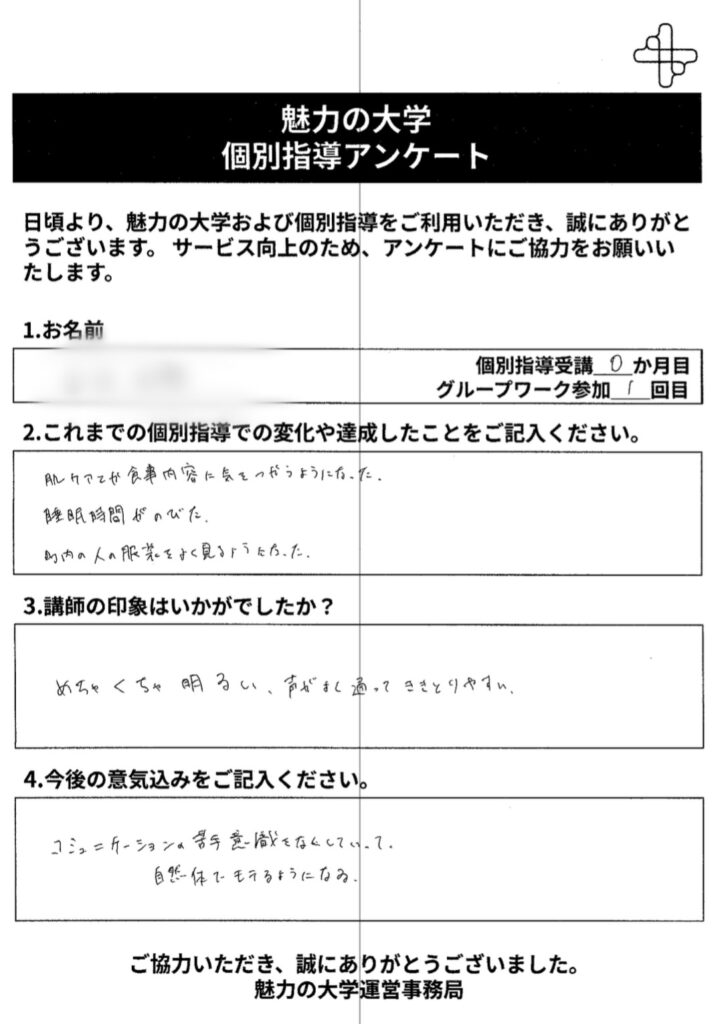 魅力の大学
個別指導アンケート
日頃より、魅力の大学および個別指導をご利用いただき、誠にありがと
うございます。 サービス向上のため、アンケートにご協力をお願いいい
たします。
1.お名前
個別指導受講 0 か月目
グループワーク参加 1 回目
2.これまでの個別指導での変化や達成したことをご記入ください。
肌ケアや食事内容に気をつかうようになった。
睡眠時間がのびた。
町内の人の服装をよく見るようになった。
3.講師の印象はいかがでしたか？
めちゃくちゃ明るい、声がよく通ってききとりやすい。
4.今後の意気込みをご記入ください。
コミュニケーションの苦手意識をなくしていって、
自然体でモテるようになる。
ご協力いただき、誠にありがとうございました。
魅力の大学運営事務局